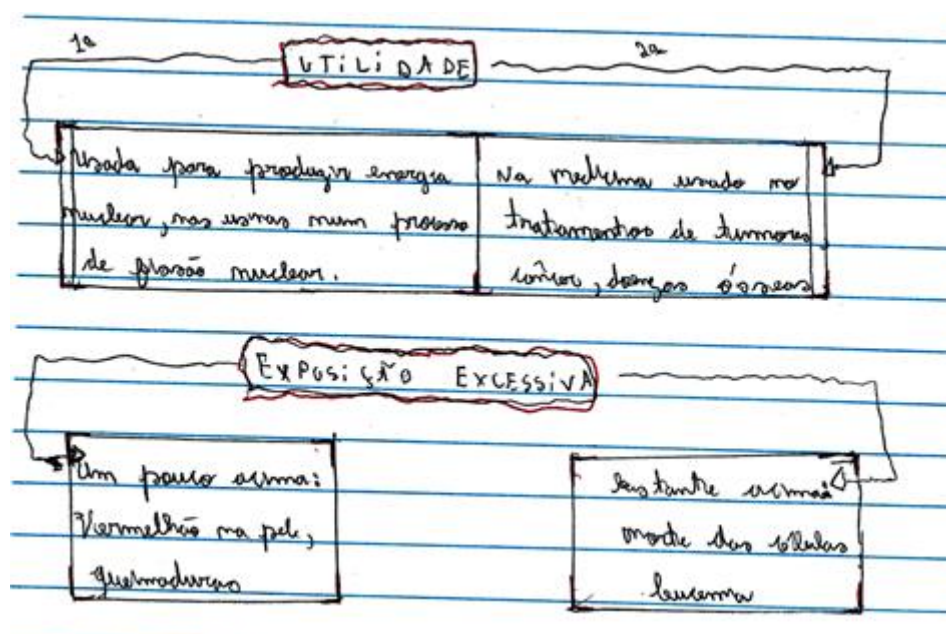 1ª 2ª
UTILIDADE
Usada para produzir energia
nuclear, nas usinas num processo
de fissão nuclear.
Na medicina usado no
tratamentos de tumores
câncer, doenças ósseas
EXPOSIÇÃO EXCESSIVA
Um pouco acima:
Vermelhão na pele,
queimaduras
Bastante acima:
morte das células
leucemia